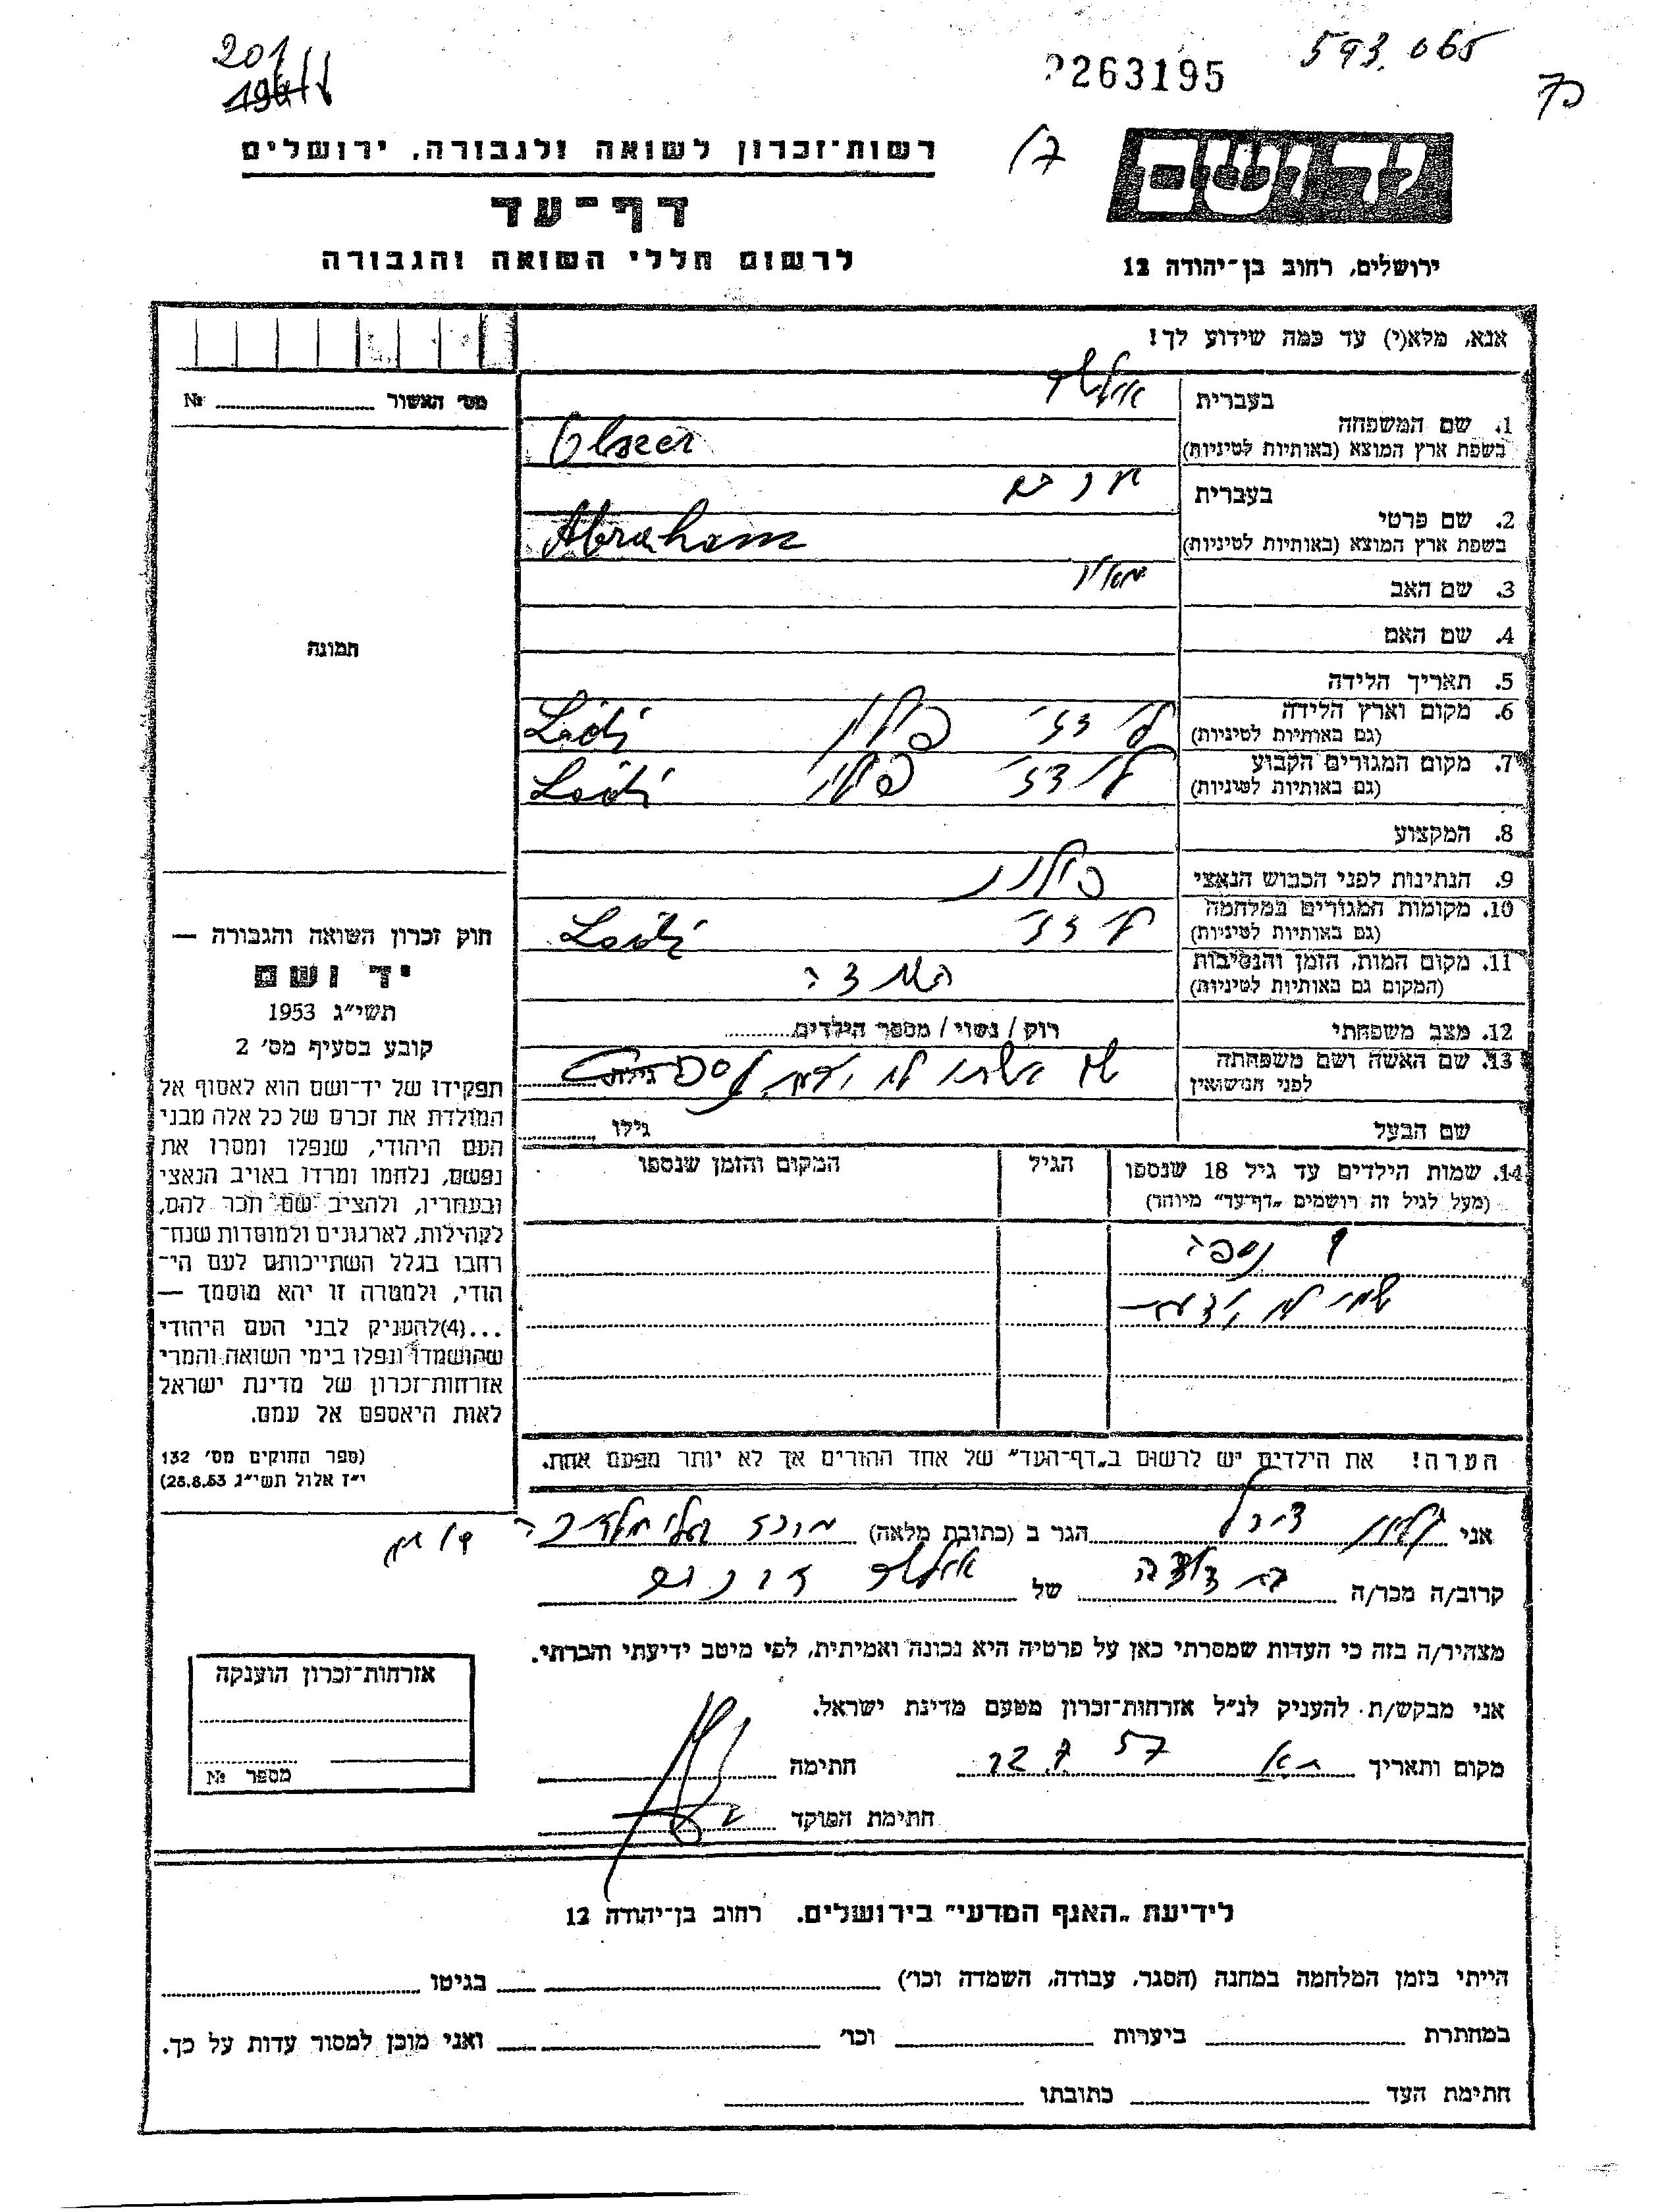 201
593.065
263195
רשות־זכרון לשואה ולגבורה, ירושלים
דף־עד
לרשום חללי השואה והגבורה
יד ושם
ירושלים, רחוב בן־יהודה 12
אנא, מלא(י) עד כמה שידוע לך!
מס׳ האשור № 
בעברית
1. שם המשפחה
בשפת ארץ המוצא (באותיות לטיניות) Olszer
בעברית
2. שם פרטי
בשפת ארץ המוצא (באותיות לטיניות) Abraham
3. שם האב מאיר
4. שם האם
5. תאריך הלידה
6. מקום וארץ הלידה לודז׳ פולין Łódź
(גם באותיות לטיניות)
7. מקום המגורים הקבוע לודז׳ פולין Łódź
(גם באותיות לטיניות)
8. המקצוע
9. הנתינות לפני הכבוש הנאצי פולנית
10. מקומות המגורים במלחמה לודז׳ Łódź
(גם באותיות לטיניות)
11. מקום המות, הזמן והנסיבות
(המקום גם באותיות לטיניות)
12. מצב משפחתי רוק / נשוי / מספר הילדים
13. שם האשה ושם משפחתה שם אשתו לא ידוע, נספתה גילה
לפני הנישואין
שם הבעל גילו
14. שמות הילדים עד גיל 18 שנספו הגיל המקום והזמן שנספו
(מעל לגיל זה רושמים „דף־עד” מיוחד)
נספה
שמו לא ידוע
הערה! את הילדים יש לרשום ב„דף־העד” של אחד ההורים אך לא יותר מפעם אחת.
תמונה
חוק זכרון השואה והגבורה —
יד ושם
תשי״ג 1953
קובע בסעיף מס׳ 2
תפקידו של יד־ושם הוא לאסוף אל
המולדת את זכרם של כל אלה מבני
העם היהודי, שנפלו ומסרו את
נפשם, נלחמו ומרדו באויב הנאצי
ובעוזריו, ולהציב שם וזכר להם,
לקהילות, לארגונים ולמוסדות שנח־
רבו בגלל השתייכותם לעם הי־
הודי, ולמטרה זו יהא מוסמך —
...(4) להעניק לבני העם היהודי
שהושמדו ונפלו בימי השואה והמרי
אזרחות־זכרון של מדינת ישראל
לאות היאספם אל עמם.
(ספר החוקים מס׳ 132
י״ז אלול תשי״ג 28.8.53)
אני הגר ב (כתובת מלאה)
קרוב/ה מכר/ה בת דודה של
מצהיר/ה בזה כי העדות שמסרתי כאן על פרטיה היא נכונה ואמיתית, לפי מיטב ידיעתי והכרתי.
אני מבקש/ת להעניק לנ״ל אזרחות־זכרון מטעם מדינת ישראל.
מקום ותאריך ת״א 22.7.57 חתימה
חתימת הפוקד
אזרחות־זכרון הוענקה
מספר №
לידיעת „האגף המדעי” בירושלים. רחוב בן־יהודה 12
הייתי בזמן המלחמה במחנה (הסגר, עבודה, השמדה וכו׳) בגיטו
במחתרת ביערות וכו׳ ואני מוכן למסור עדות על כך.
חתימת העד כתובתו